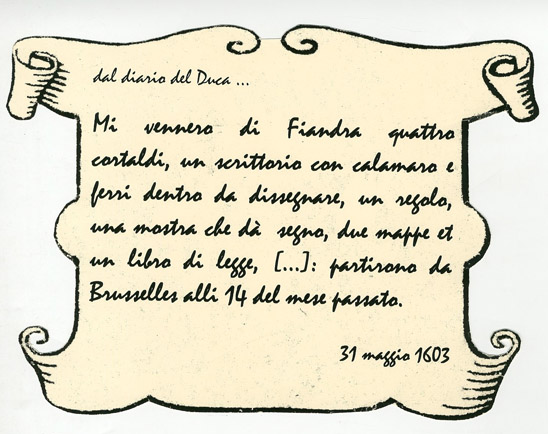 dal diario del Duca ...
Mi vennero di Fiandra quattro
cortaldi, un scrittorio con calamaro e
ferri dentro da dissegnare, un regolo,
una mostra che dà segno, due mappe et
un libro di legge, [...]: partirono da
Brusselles alli 14 del mese passato.
31 maggio 1603